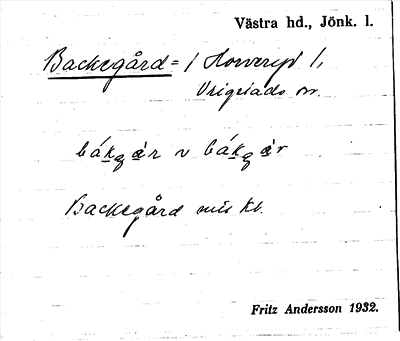 Västra hd., Jönk. l.
Backegård = / Horveryd /,
Vrigstads sn.
bákgær v bákgær
Backegård mts kb.
Fritz Andersson 1932.